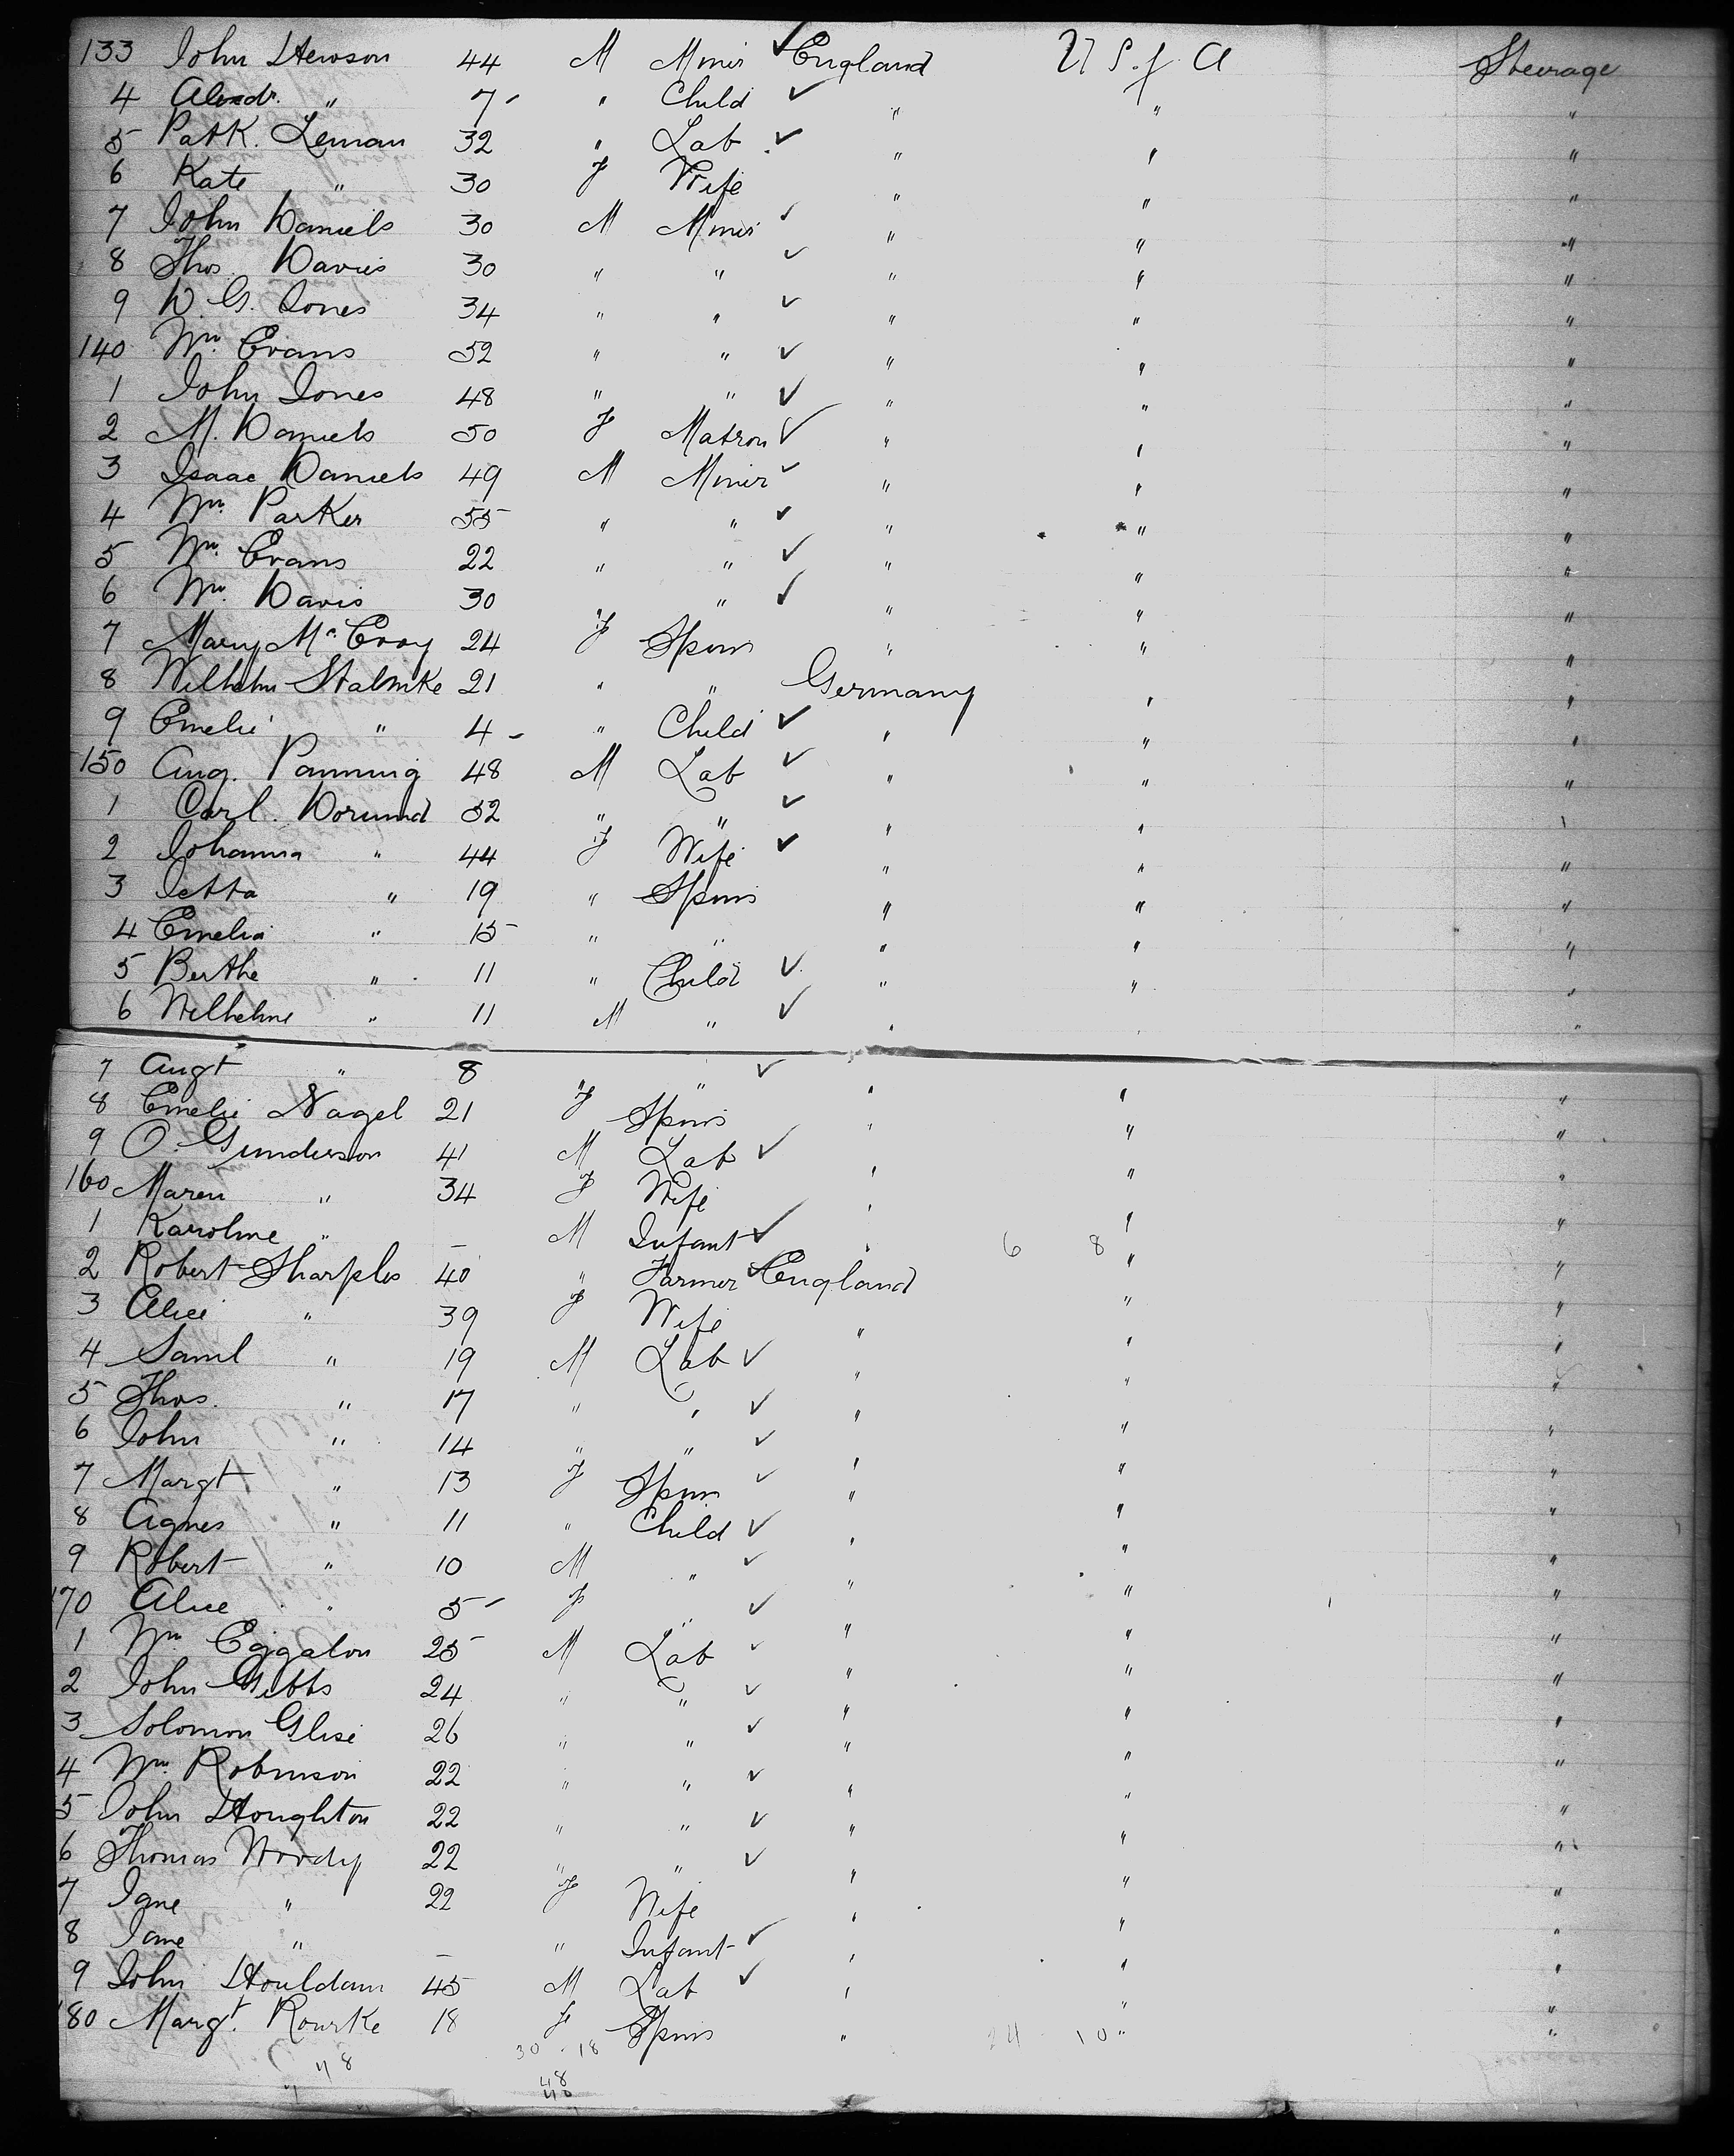 133 John Hewson 44 M Miner ✓ England U S. of A Steerage
4 Alexdr. " 7 - " Child ✓ " " "
5 Patk. Leman 32 " Lab ✓ " " "
6 Kate " 30 F Wife " " "
7 John Daniels 30 M Miner ✓ " " "
8 Thos. Davies 30 " " ✓ " " "
9 D. G. Jones 34 " " ✓ " " "
140 Wm. Evans 52 " " ✓ " " "
1 John Jones 48 " " ✓ " " "
2 M. Daniels 50 F Matron ✓ " " "
3 Isaac Daniels 49 M Miner ✓ " " "
4 Wm. Parker 55 " " ✓ " " "
5 Wm. Evans 22 " " ✓ " " "
6 Wm. Davis 30 " " ✓ " " "
7 Mary McEvoy 24 F Spins " " "
8 Wilhelm Stalmke 21 " " Germany " "
9 Emelie " 4 - " Child ✓ " " "
150 Aug. Panning 48 M Lab ✓ " " "
1 Carl. Dorund 52 " " ✓ " " "
2 Johanna " 44 F Wife ✓ " " "
3 Jetta " 19 " Spins " " "
4 Emelia " 15 " " " " "
5 Berthe " 11 " Child ✓ " " "
6 Wilhelme " 11 M " ✓ " " "
7 Augt " 8 " " ✓ " " "
8 Emelie Nagel 21 F Spins " " "
9 O. Gunderson 41 M Lab ✓ " " "
160 Maren " 34 F Wife " " "
1 Karoline " - M Infant ✓ " 6 8 " "
2 Robert Sharples 40 " Farmer ✓ England " "
3 Alice " 39 F Wife " " "
4 Saml " 19 M Lab ✓ " " "
5 Thos. " 17 " " ✓ " " "
6 John " 14 " " ✓ " " "
7 Margt " 13 F Spins ✓ " " "
8 Agnes " 11 " Child ✓ " " "
9 Robert " 10 M " ✓ " " "
170 Alice " 5 - F " ✓ " " "
1 Wm Eggalon 25 M Lab ✓ " " "
2 John Gibbs 24 " " ✓ " " "
3 Solomon Glise 26 " " ✓ " " "
4 Wm. Robinson 22 " " ✓ " " "
5 John Houghton 22 " " ✓ " " "
6 Thomas Woody 22 " " ✓ " " "
7 Jane " 22 F Wife " " "
8 Jane " - " Infant ✓ " " "
9 John Houldam 45 M Lab ✓ " " "
180 Margt. Rourke 18 F Spins " 24 10 " "
30 . 18
48
48